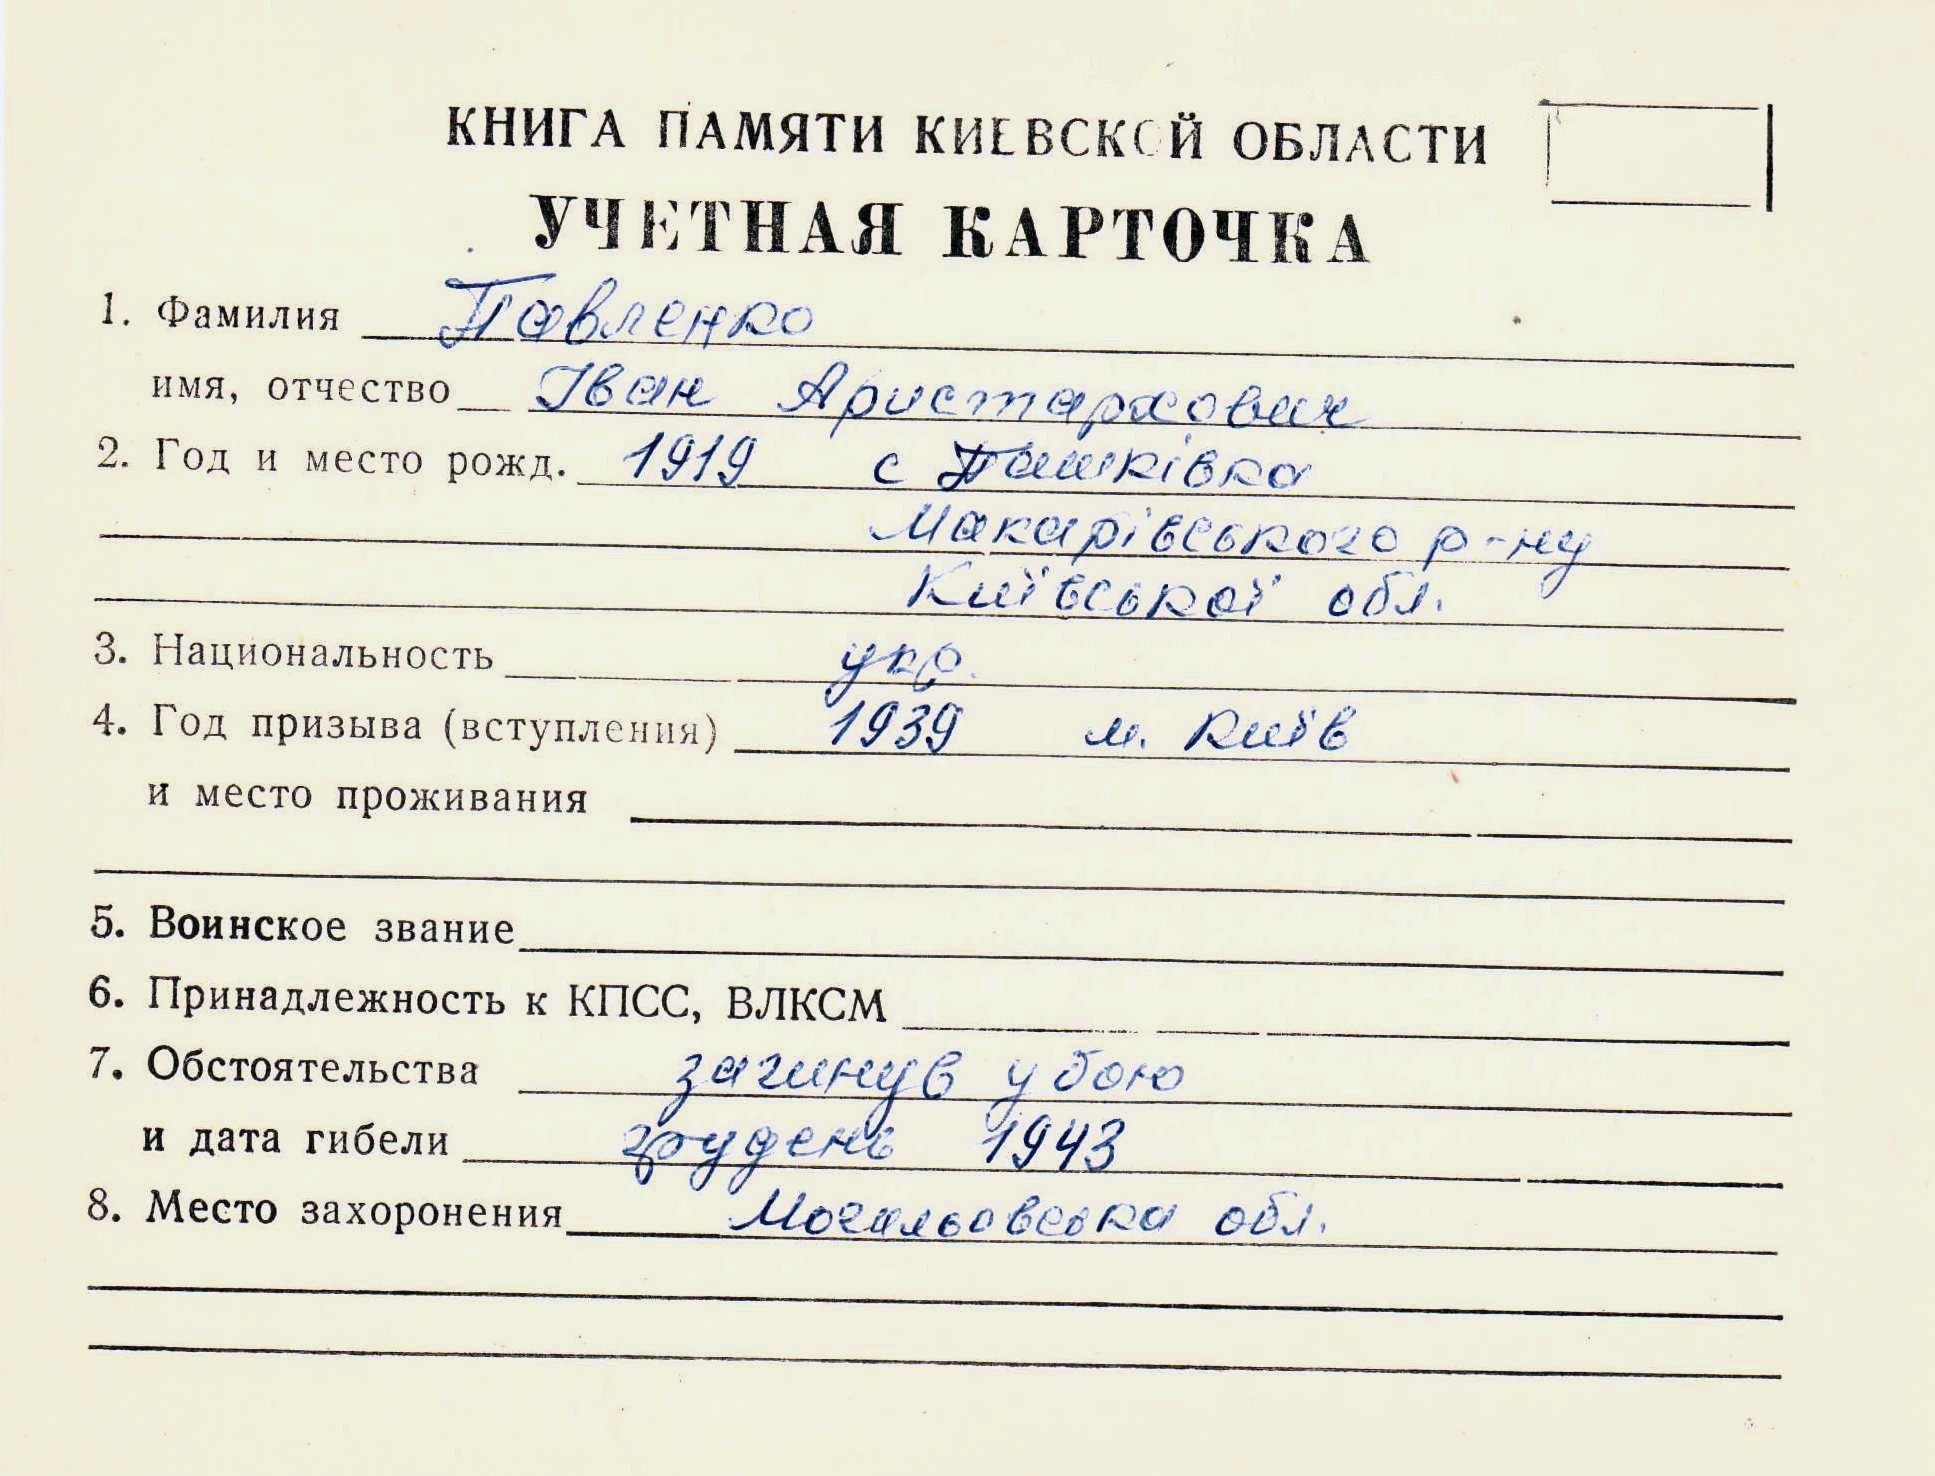 КНИГА ПАМЯТИ КИЕВСКОЙ ОБЛАСТИ
УЧЕТНАЯ КАРТОЧКА
1. Фамилия Павленко
имя, отчество Іван Аристархович
2. Год и место рожд. 1919 с Пашківка
Макарівського р-ну
Київської обл.
3. Национальность укр.
4. Год призыва (вступления) 1939 м. Київ
и место проживания
5. Воинское звание
6. Принадлежность к КПСС, ВЛКСМ
7. Обстоятельства загинув у бою
и дата гибели грудень 1943
8. Место захоронения Могильовська обл.